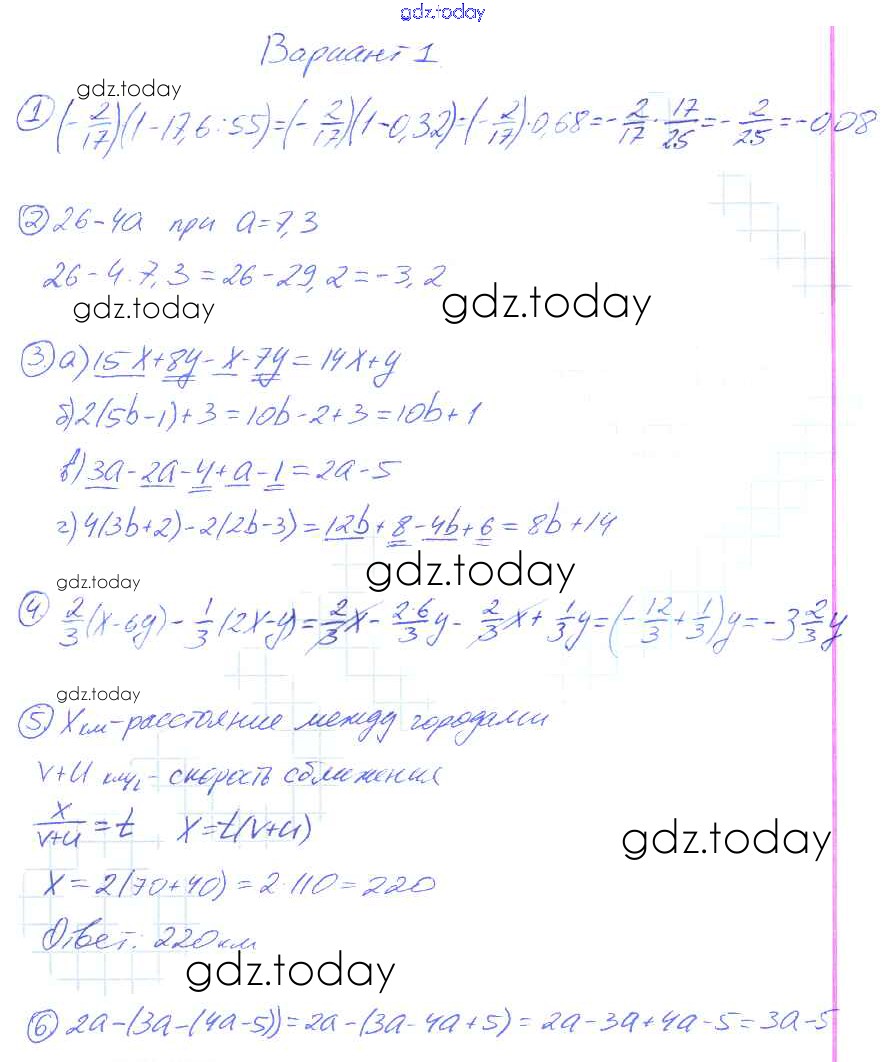 gdz.today
Вариант 1
gdz.today
① (-2/17)(1-17,6:55)=(-2/17)(1-0,32)=(-2/17)·0,68=-2/17·17/25=-2/25=-0,08
② 26-4a при a=7,3
26-4·7,3=26-29,2=-3,2
gdz.today
gdz.today
③ а) 15x+8y-x-7y=14x+y
б) 2(5b-1)+3=10b-2+3=10b+1
в) 3a-2a-4+a-1=2a-5
г) 4(3b+2)-2(2b-3)=12b+8-4b+6=8b+14
gdz.today
gdz.today
④ 2/3(x-6y)-1/3(2x-y)=2/3x-2·6/3y-2/3x+1/3y=(-12/3+1/3)y=-3 2/3y
gdz.today
⑤ x км-расстояние между городами
v+u км/ч - скорость сближения
x/(v+u)=t x=t(v+u)
gdz.today
x=2(70+40)=2·110=220
Ответ: 220 км
gdz.today
⑥ 2a-(3a-(4a-5))=2a-(3a-4a+5)=2a-3a+4a-5=3a-5